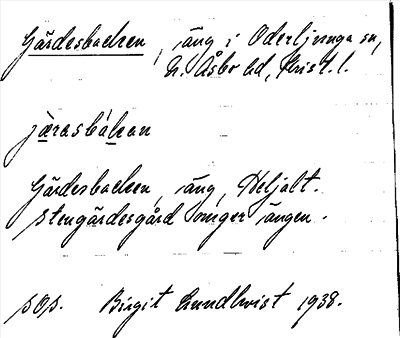 Gärdesbacken, äng i Oderljunga sn,
N. Åsbo hd, Krist. l.
järasbákan
Gärdesbacken, äng, Heljalt.
Stengärdesgård omger ängen.
sOs. Birgit Lundkvist 1938.